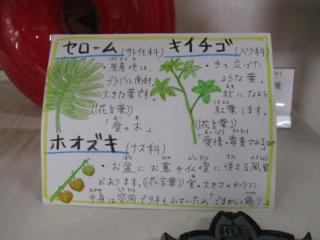 セローム(サトイモ科)
・原産地は、
ブラジル南部。
大きな葉です。
((花言葉))
「愛の木」
キイチゴ(バラ科)
・手を広げた
ような葉。
・秋になると
紅葉します。
((花言葉))
「愛情・尊重される」
ホオズキ(ナス科)
・お盆にお墓や仏壇に供える風習
があります。((花言葉))実の大きさのわりに
中身は空洞でタネも小さいため「ごまかし・偽り」